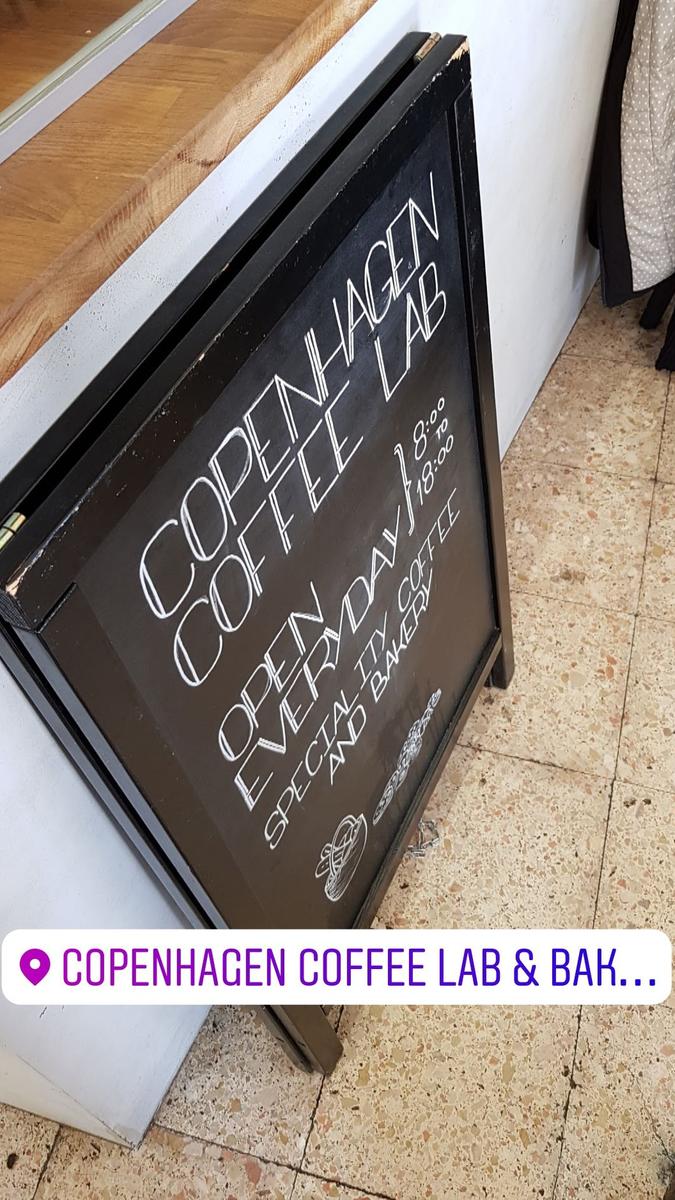 COPENHAGEN
COFFEE LAB
OPEN
EVERYDAY } 8:00
TO
18:00
SPECIALITY COFFEE
AND BAKERY
COPENHAGEN COFFEE LAB & BAK...